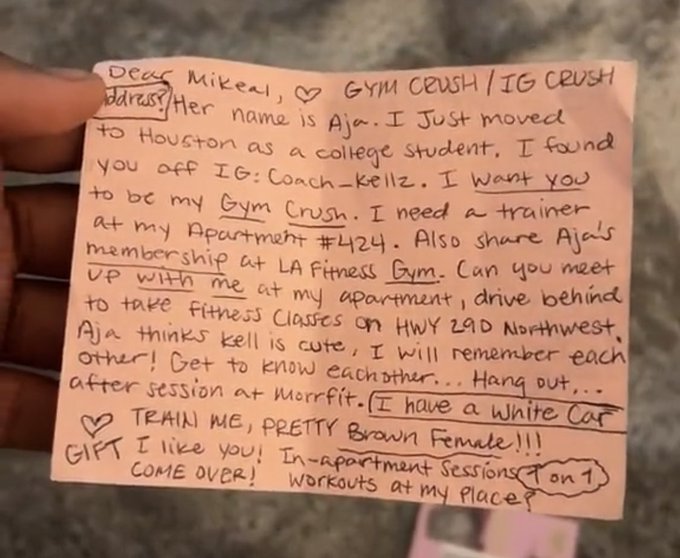 Dear Mikeal, ♡ GYM CRUSH / IG CRUSH
Address? Her name is Aja. I Just moved
to Houston as a college student. I found
you off IG: Coach_Kellz. I want you
to be my Gym Crush. I need a trainer
at my Apartment #424. Also share Aja's
membership at LA Fitness Gym. Can you meet
up with me at my apartment, drive behind
to take fitness classes on HWY 290 Northwest.
Aja thinks kell is cute, I will remember each
other! Get to know eachother... Hang out,...
after session at Morrfit. I have a white Car
♡ TRAIN ME, PRETTY Brown Female!!!
GIFT I like you! In-apartment Sessions 1 on 1
COME OVER! Workouts at my Place?